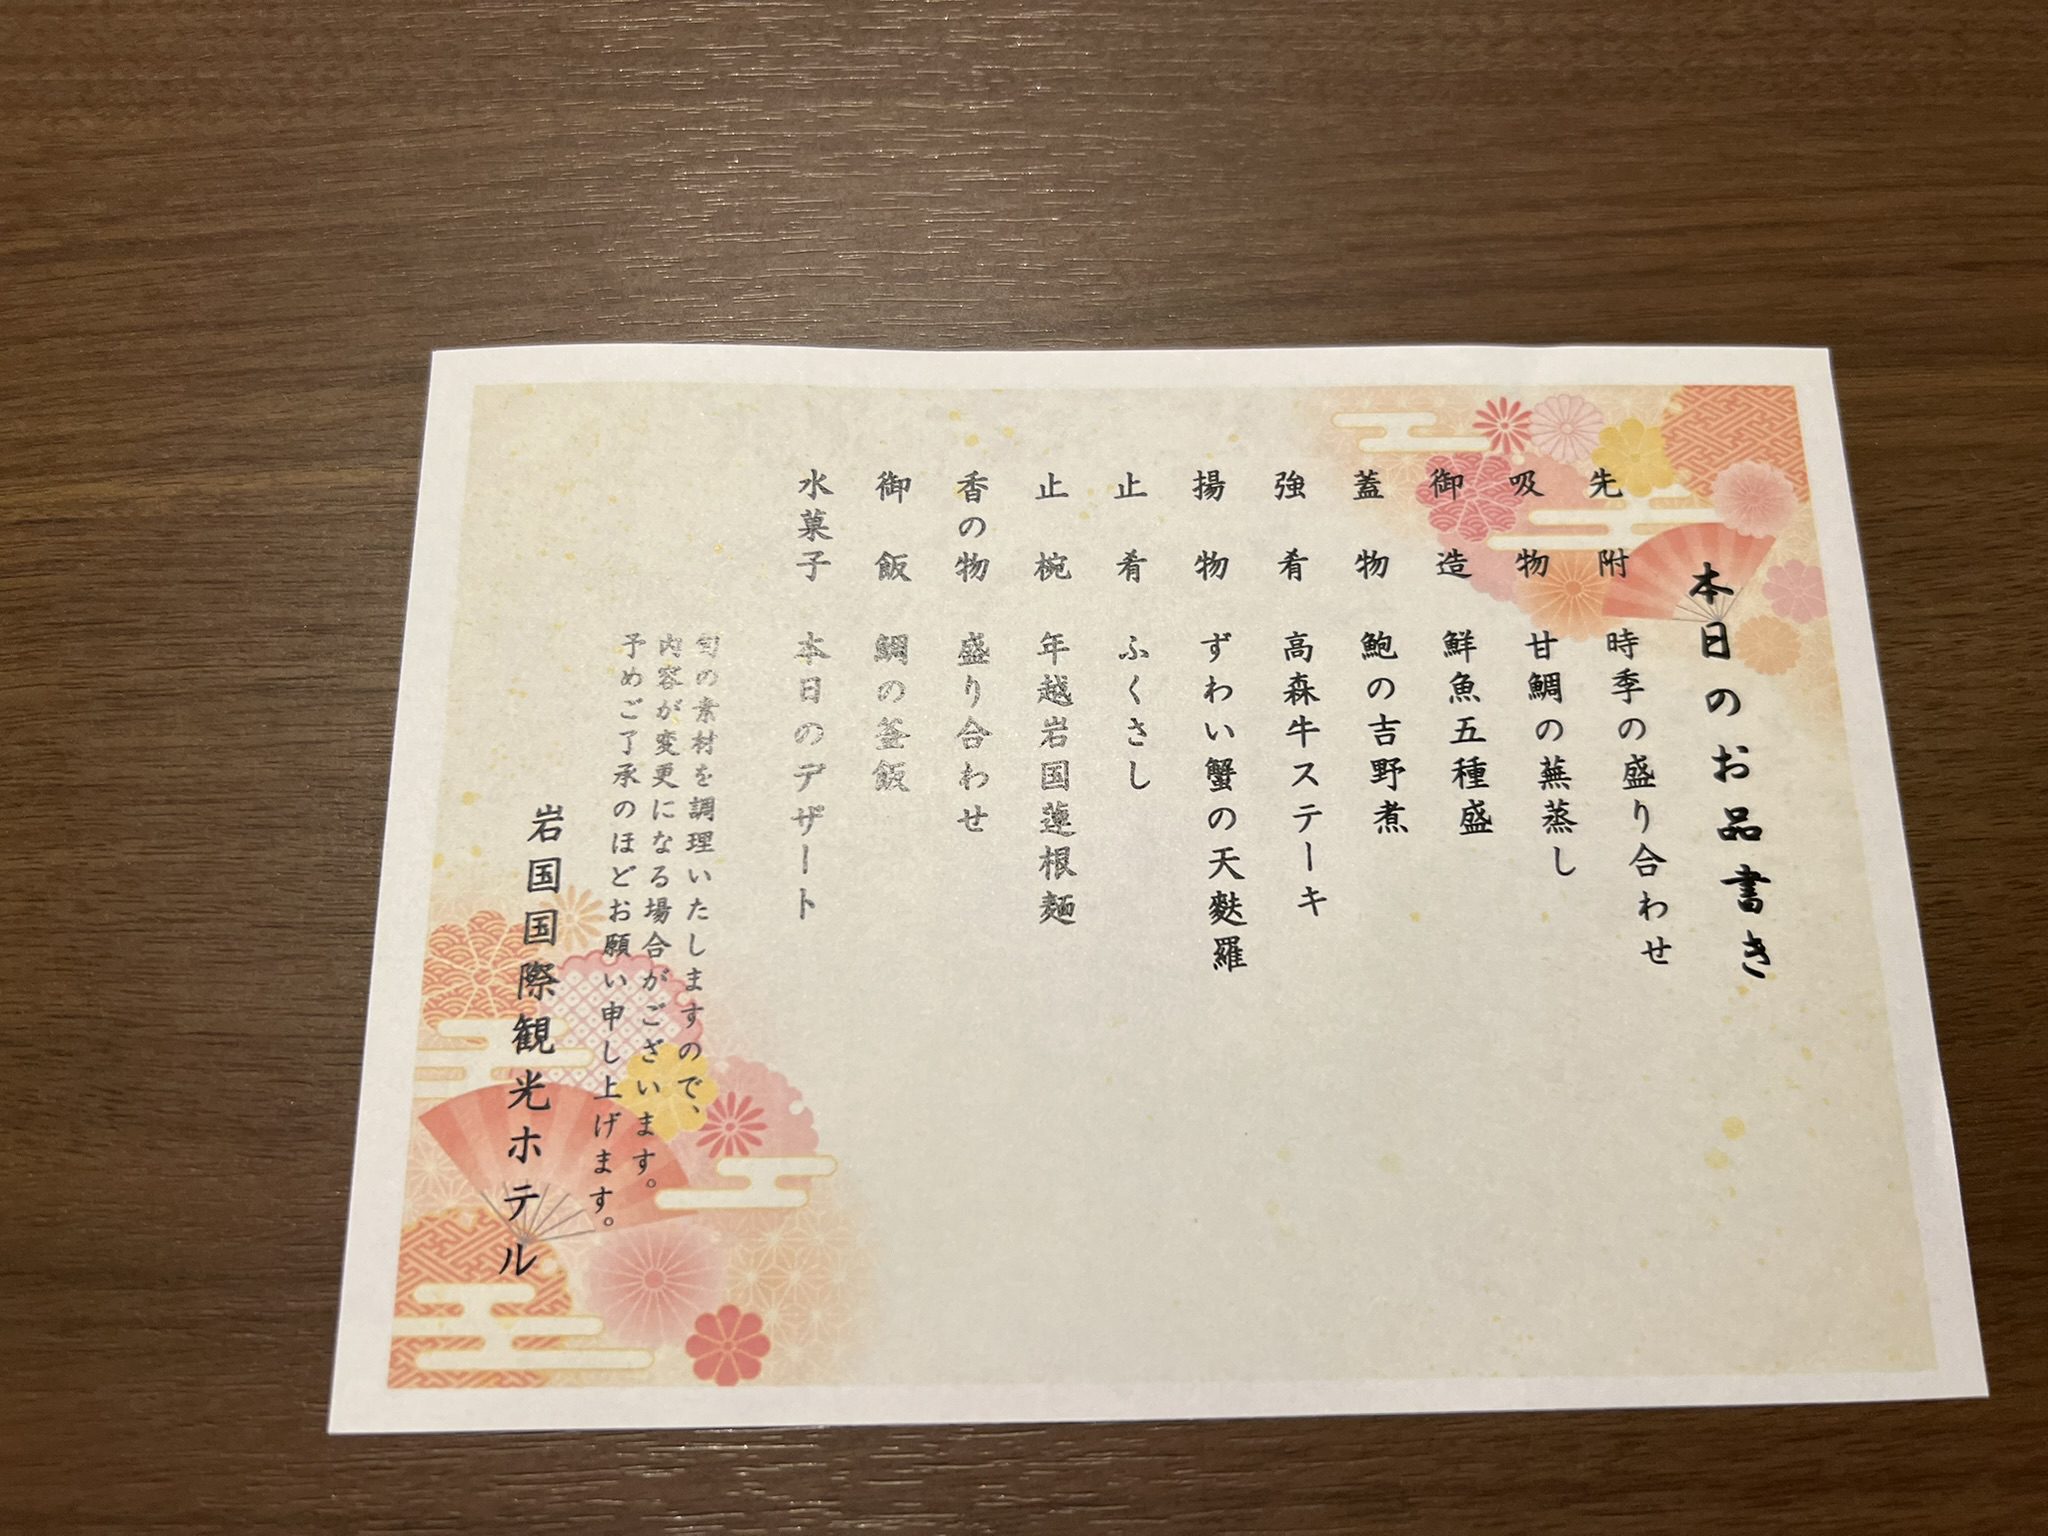 本日のお品書き
先附 時季の盛り合わせ
吸物 甘鯛の蕪蒸し
御造 鮮魚五種盛
蓋物 鮑の吉野煮
強肴 高森牛ステーキ
揚物 ずわい蟹の天麩羅
止肴 ふくさし
止椀 年越岩国蓮根麺
香の物 盛り合わせ
御飯 鯛の釜飯
水菓子 本日のデザート
旬の素材を調理いたしますので、
内容が変更になる場合がございます。
予めご了承のほどお願い申し上げます。
岩国国際観光ホテル